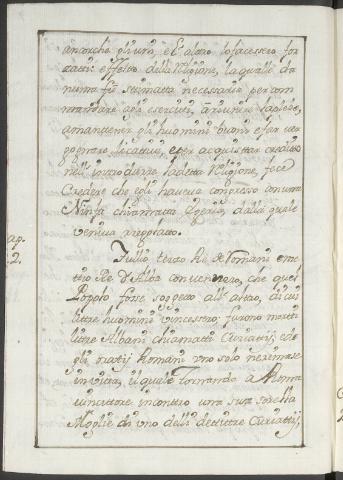 ancorche gli uni, e l'altro lo facessero for
zatti: effetto della Religione, la qualle da
numa fù stimatta necessaria per com
mandare agli eserciti, à riunire la plebe,
a mantener gli huomini buoni e far ver
gognare li cattivi, e per acquistar credito
nell'introdurre la detta Religione, fece
Credere che egli haveva congresso con una
Ninfa chiamatta Egeria, dalla quale
veniva
Cap.
2.
Tullio terzo Rè de Romani e me
tio Rè d'Alba convennero, che quel
Popolo fosse soggetto all'altro, di cui
li tre huomini vincessero; furono morti
li tre Albani chiamatti Curiatij, e de
gli oratij Romani uno solo ne rimase
in vita, il quale Tornando a Roma
vincittore incontrò una sua sorella
Moglie di uno delli detti tre Curiatij,